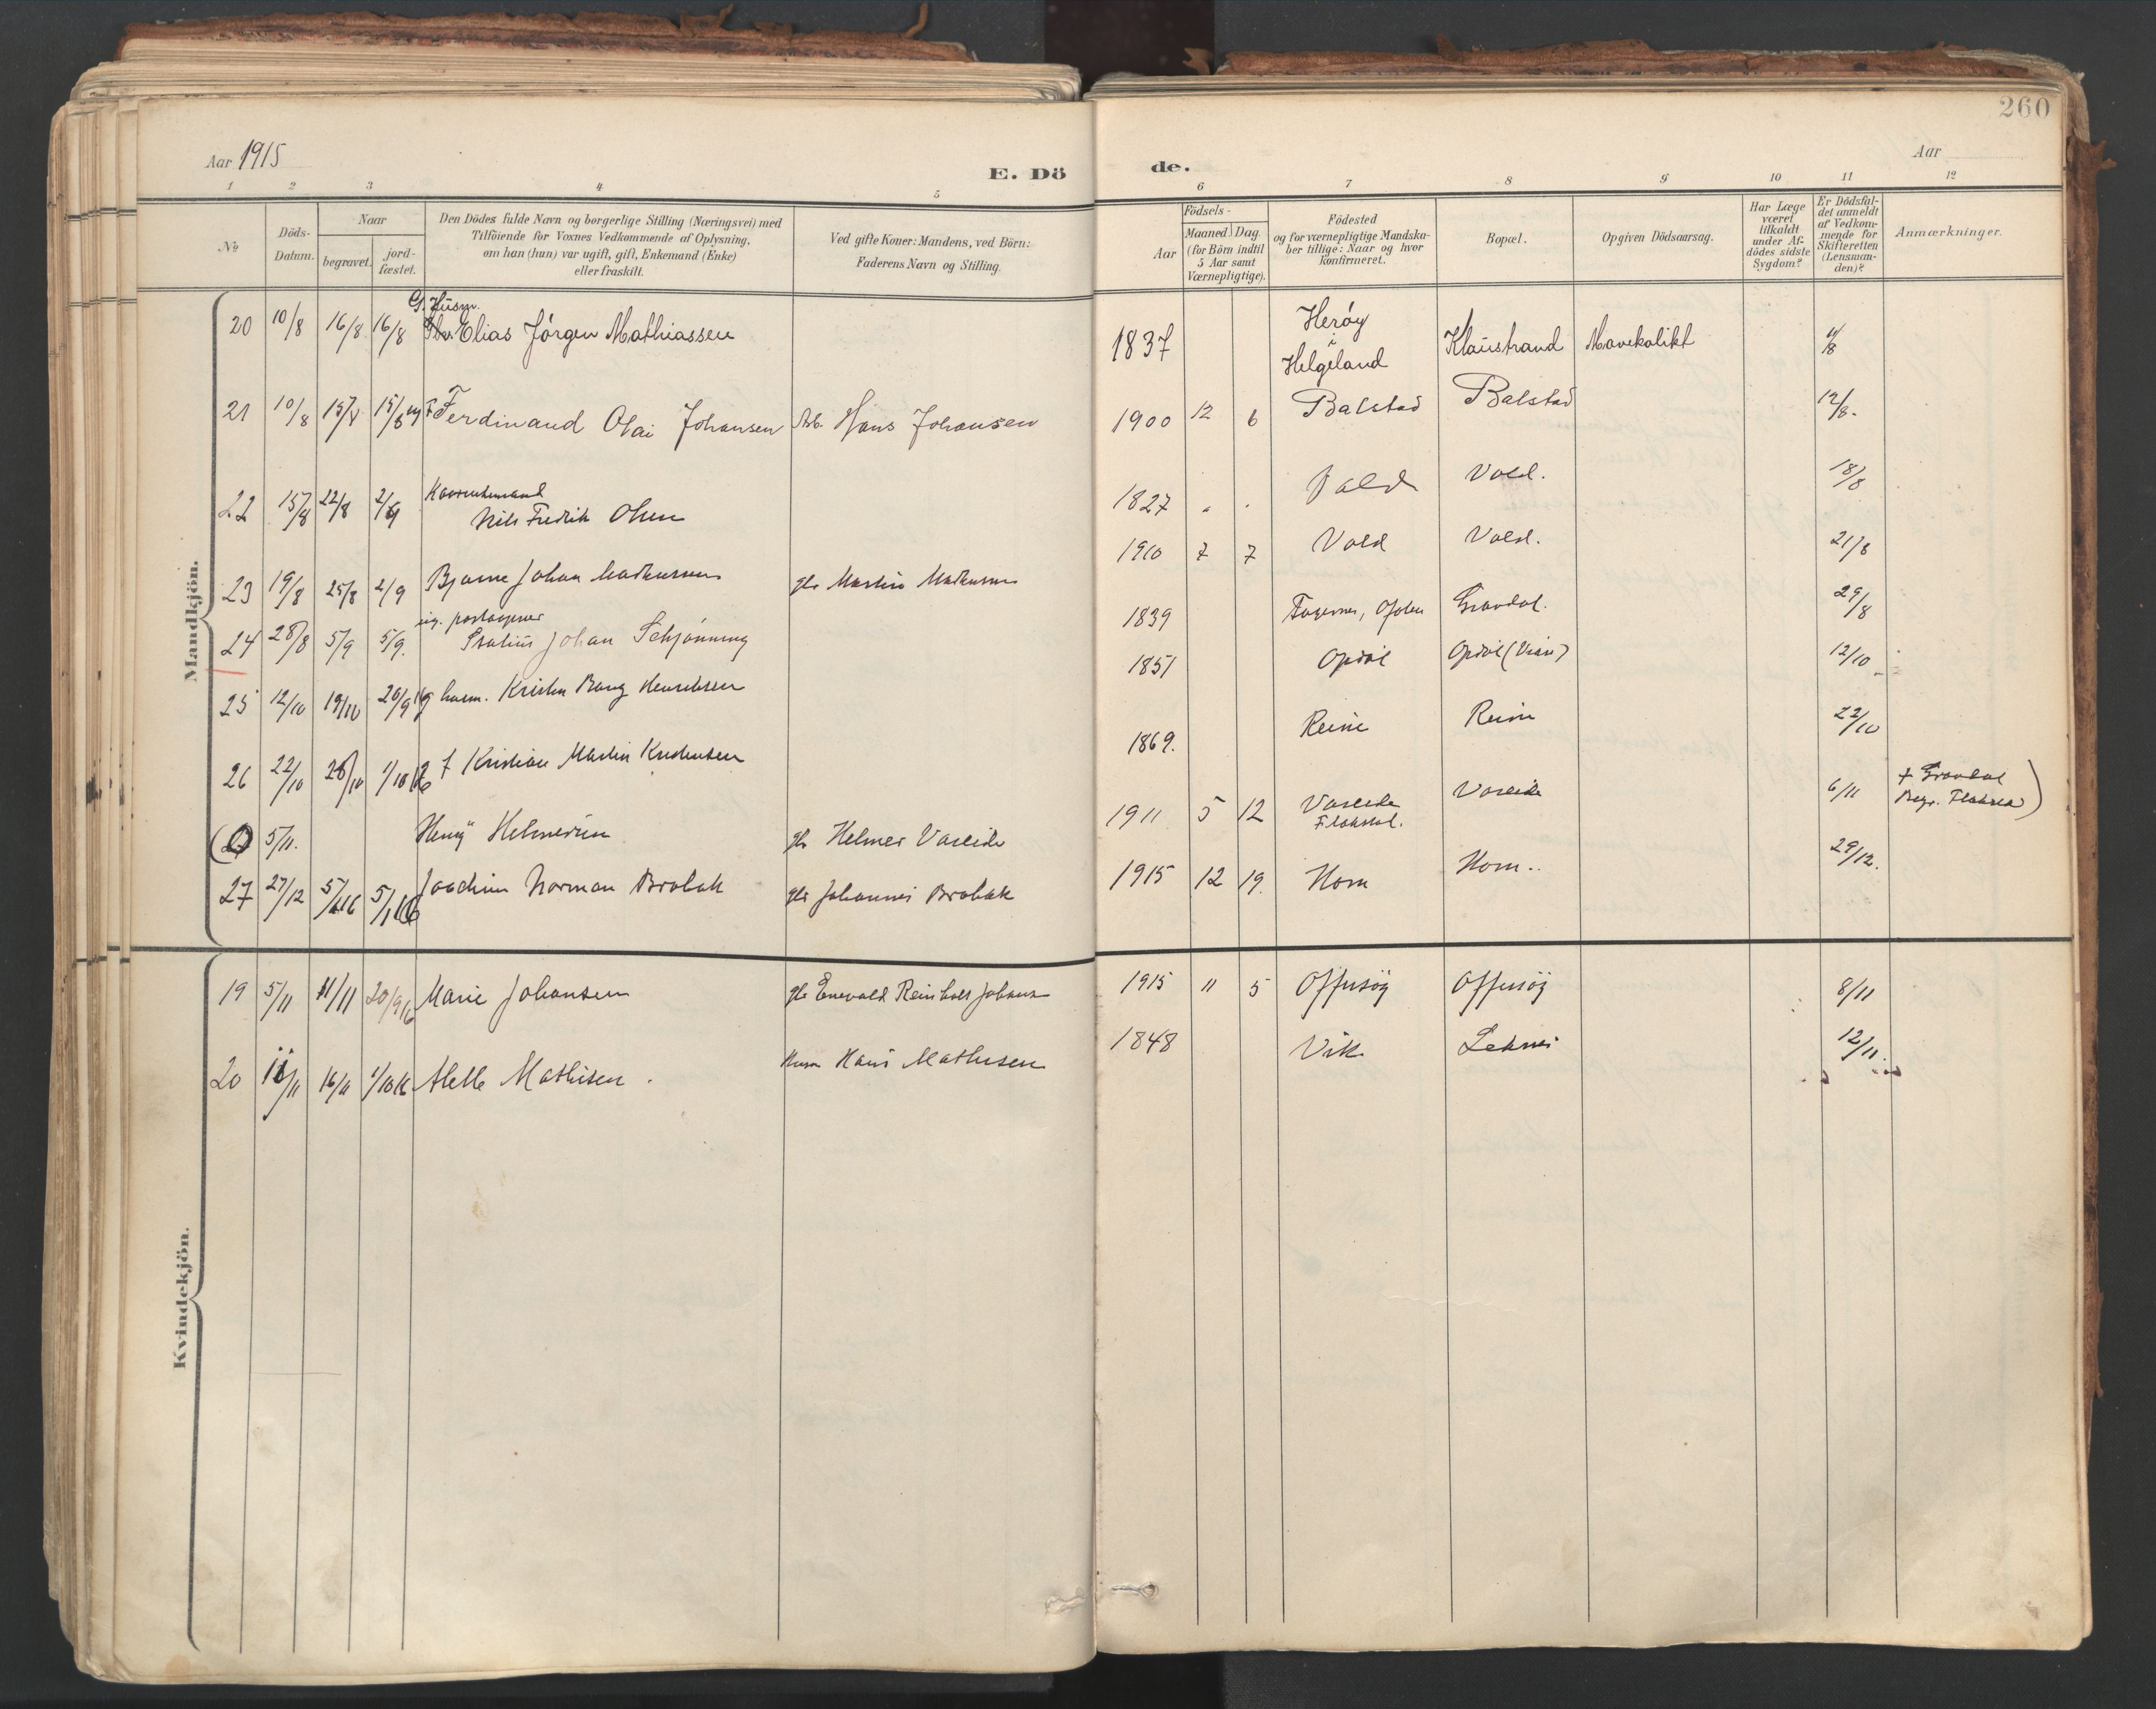 260
Aar 1915
E. Dö
de.
Aar
1 2 3 4 5 6 7 8 9 10 11 12
No
Döds-Datum.
Naar
begravet.
jord-fæstet.
Den Dödes fulde Navn og borgerlige Stilling (Næringsvei) med
Tilföiende for Voxnes Vedkommende af Oplysning,
om han (hun) var ugift, gift, Enkemand (Enke)
eller fraskilt.
Ved gifte Koner: Mandens, ved Börn:
Faderens Navn og Stilling.
Födsels-
Aar
Maaned. Dag.
(for Börn indtil
5 Aar samt
Værnepligtige).
Födested
og for værnepligtige Mandska-
ber tillige: Naar og hvor
konfirmeret.
Bopæl.
Opgiven Dödsaarsag.
Har Læge
været
tilkaldt
under Af-
dödes sidste
Sygdom?
Er Dödsfal-
det anmeldt
af Vedkom-
mende for
Skifteretten
(Lensman-
den)?
Anmærkninger.
Mandkjön.
G. Husm.
20 10/8 16/8 16/8 Elias Jörgen Mathiassen 1837 Herøy i Helgeland Klaustrand Mavekolikt 11/8
21 10/8 15/8 15/8 Ferdinand Olai Johansen Arb. Hans Johansen 1900 12 6 Balstad Balstad 12/8.
22 15/8 22/8 2/9 Kaarenkemand
Nils Fredrik Olsen 1827 Vold Vold. 18/8
23 19/8 25/8 2/9 Bjarne Johan Markussen gbr Martin Markussen 1910 7 7 Vold Vold. 21/8
24 28/8 5/9 5/9. ug. postaapner
Statius Johan Schjönning 1839 Fagernes, Ofoten Gravdal. 29/8
25 12/10 19/10 20/9 16 g husm. Kristen Bang Henriksen 1851 Opdöl Opdöl 12/10
26 22/10 28/10 1/10 16 f Kristian Martin Kristensen 1869. Reine Reine 22/10
5/11. Henry Helmersen gbr Helmer Vareide 1911 5 12 Vareide
Flakstad. Vareide 6/11 + Gravdal
Begr. Flakstad)
27 27/12 5/1 16 5/1 16 Joachim Norman Brobak gbr Johannes Brobak 1915 12 19. Horn Horn.. 29/12.
Kvindekjön.
19 5/11 11/11 20/9 16 Marie Johansen gbr Enevald Reinholt Johans 1915 11 5 Offersöy Offersöy 8/11
20 11/11 16/11 1/10 16 Alette Mathisen. Husm Hans Mathisen 1848 Vik Leknes 12/11.